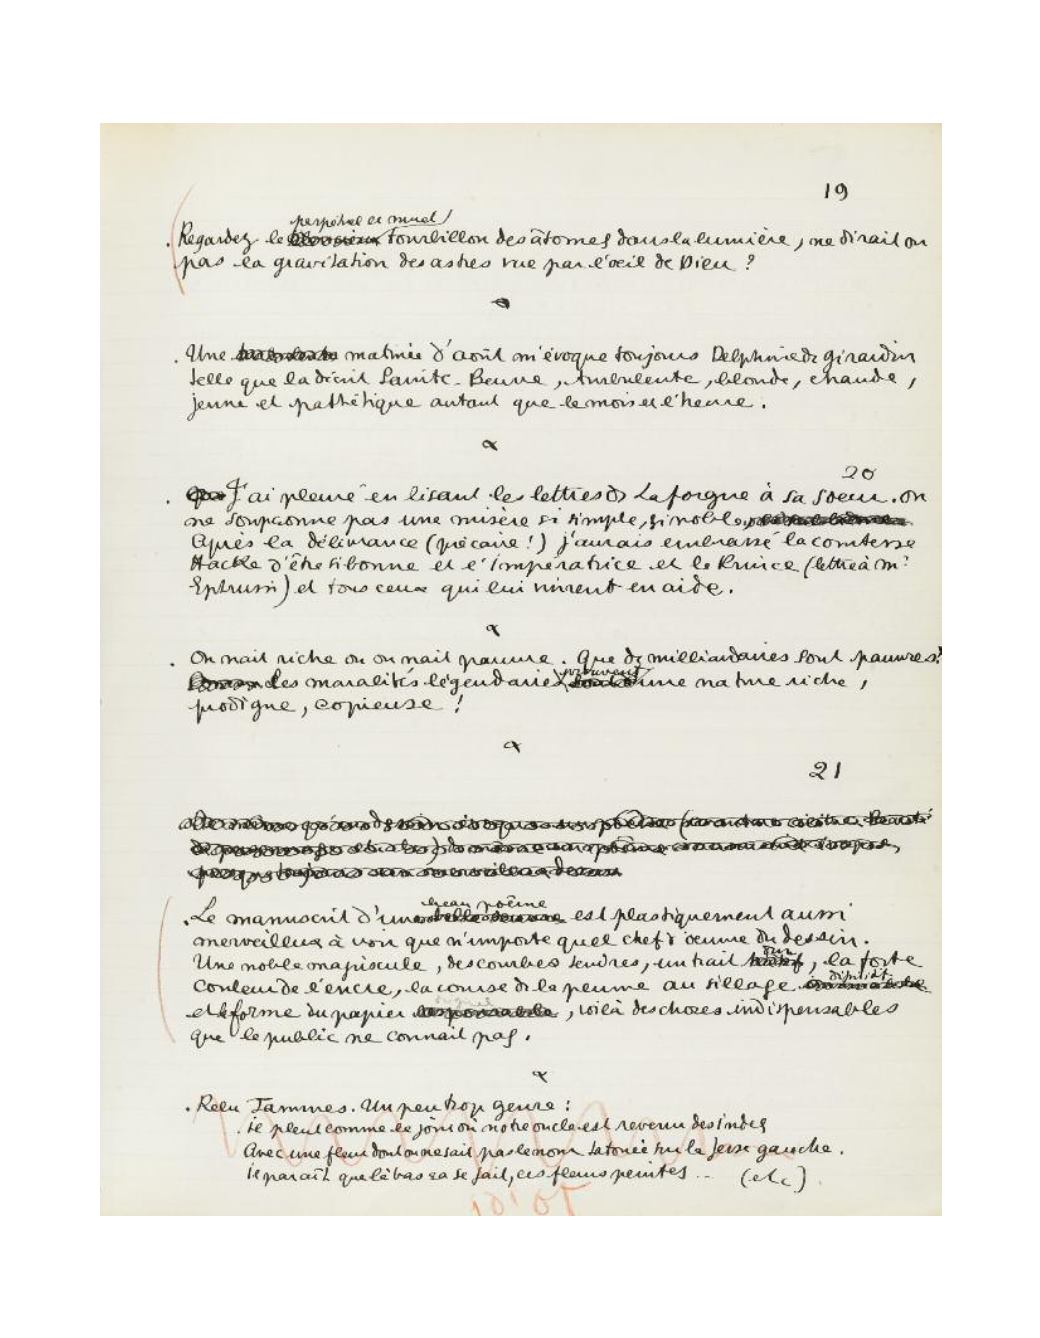 19
perpétuel et muet
. Regardez le tourbillon des âtomes dans la lumière, ne dirait on
pas la gravitation des astres vue par l'oeil de Dieu ?
. Une matinée d'août m'évoque toujours Delphine de Girardin
telle que la décrit Sainte-Beuve, turbulente, blonde, chaude,
jeune et pathétique autant que le mois et l'heure.
20
. J'ai pleuré en lisant les lettres de Laforgue à sa soeur. On
ne soupçonne pas une misère si simple, si noble,
Après la délivrance (précaire !) j'aurais embrassé la comtesse
Hacke d'être si bonne et l'Impératrice et le Prince (lettre à Mr
Ephrussi) et tous ceux qui lui vinrent en aide.
. On nait riche ou on nait pauvre. Que de milliardaires sont pauvres!
Les moralités légendaires une nature riche,
prodigue, copieuse !
21
beau poème
. Le manuscrit d'un est plastiquement aussi
merveilleux à voir que n'importe quel chef d'oeuvre du dessin.
Une noble majuscule, des courbes tendres, un trait dur, la forte
couleur de l'encre, la course de la plume au sillage
et la forme du papier , voilà des choses indispensables
que le public ne connait pas.
. Relu Jammes. Un peu trop genre :
. il pleut comme le jour où notre oncle est revenu des Indes
Avec une fleur dont on ne sait pas le nom tatouée sur la fesse gauche.
Il paraît que là bas ça se fait, ces fleurs peintes .. (etc)